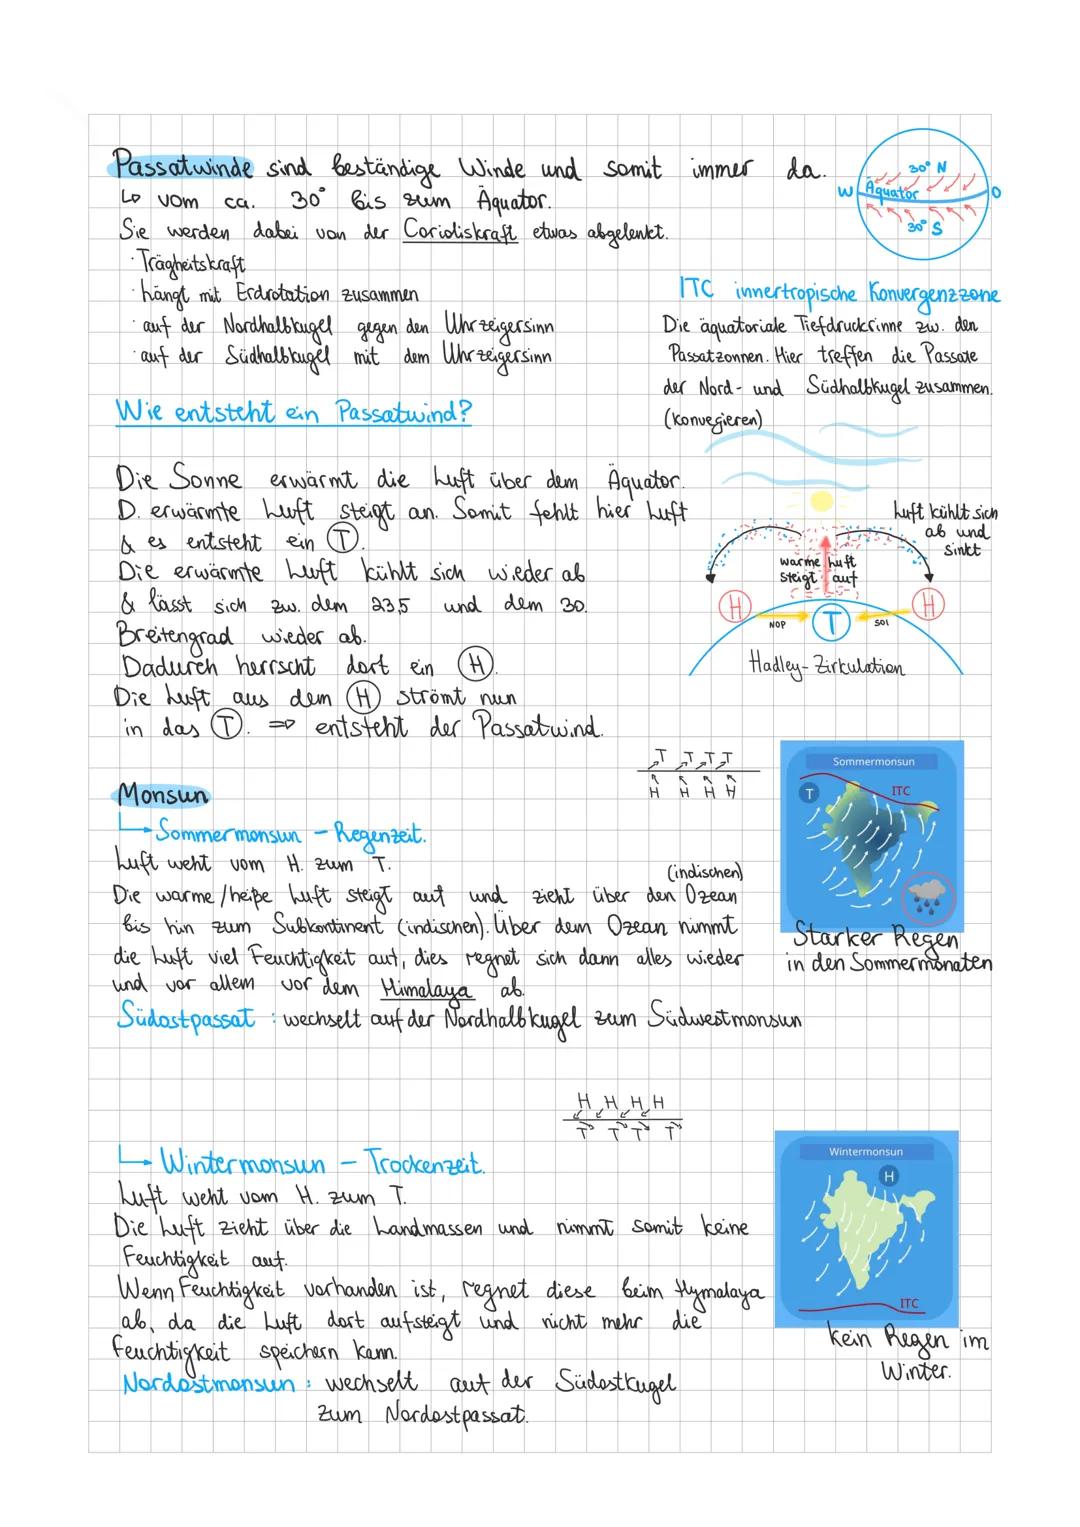 Passatwinde sind beständige Winde und somit immer da.
↳ vom ca. 30° bis zum Äquator.
Sie werden dabei von der Corioliskraft etwas abgelenkt.
· Trägheitskraft
· hängt mit Erdrotation zusammen
· auf der Nordhalbkugel gegen den Uhrzeigersinn
· auf der Südhalbkugel mit dem Uhrzeigersinn
30° N
W Äquator O
30° S
ITC innertropische Konvergenzzone
Die äquatoriale Tiefdruckrinne zw. den
Passatzonnen. Hier treffen die Passate
der Nord- und Südhalbkugel zusammen.
(konvegieren)
Wie entsteht ein Passatwind?
Die Sonne erwärmt die Luft über dem Äquator.
D. erwärmte Luft steigt an. Somit fehlt hier Luft
& es entsteht ein T.
Die erwärmte Luft kühlt sich wieder ab
& lässt sich zw. dem 23,5 und dem 30.
Breitengrad wieder ab.
Dadurch herrscht dort ein H.
Die Luft aus dem H strömt nun
in das T. => entsteht der Passatwind.
Luft kühlt sich
ab und
sinkt
warme Luft
steigt auf
H T H
NOP SOI
Hadley-Zirkulation
T T T T
H H H H
Monsun
↳ Sommermonsun - Regenzeit.
Luft weht vom H. zum T.
(indischen)
Die warme/heiße Luft steigt auf und zieht über den Ozean
bis hin zum Subkontinent (indischen). Über dem Ozean nimmt
die Luft viel Feuchtigkeit auf, dies regnet sich dann alles wieder
und vor allem vor dem Himalaya ab.
Südostpassat : wechselt auf der Nordhalbkugel zum Südwestmonsun
Sommermonsun
T ITC
Starker Regen
in den Sommermonaten
H H H H
T T T T
↳ Wintermonsun - Trockenzeit.
Luft weht vom H. zum T.
Die Luft zieht über die Landmassen und nimmt somit keine
Feuchtigkeit auf.
Wenn Feuchtigkeit vorhanden ist, regnet diese beim Hymalaya
ab, da die Luft dort aufsteigt und nicht mehr die
Feuchtigkeit speichern kann.
Nordostmonsun : wechselt auf der Südostkugel
zum Nordostpassat.
Wintermonsun
H
ITC
kein Regen im
Winter.